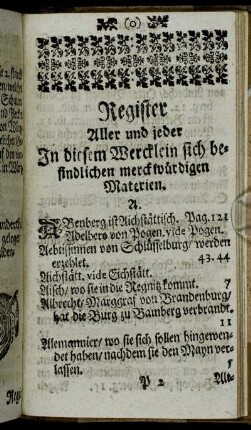 (o)
Register
Aller und jeder
In diesem Wercklein sich be-
findlichen merckwürdigen
Materien.
A.
ABenberg ist Aichstättisch. Pag. 121
Adelbero von Pogen. vide Pogen.
Aebtissinnen von Schlüsselburg / werden
erzehlet. 43. 44
Aichstätt. vide Eichstätt.
Aisch / wo sie in die Regnitz kommt. 7
Albrecht / Marggraf von Brandenburg /
hat die Burg zu Bamberg verbrandt.
11
Alemannier / wo sie sich sollen hingewen-
det haben / nachdem sie den Mayn ver-
lassen. 5
P 2 Alt-